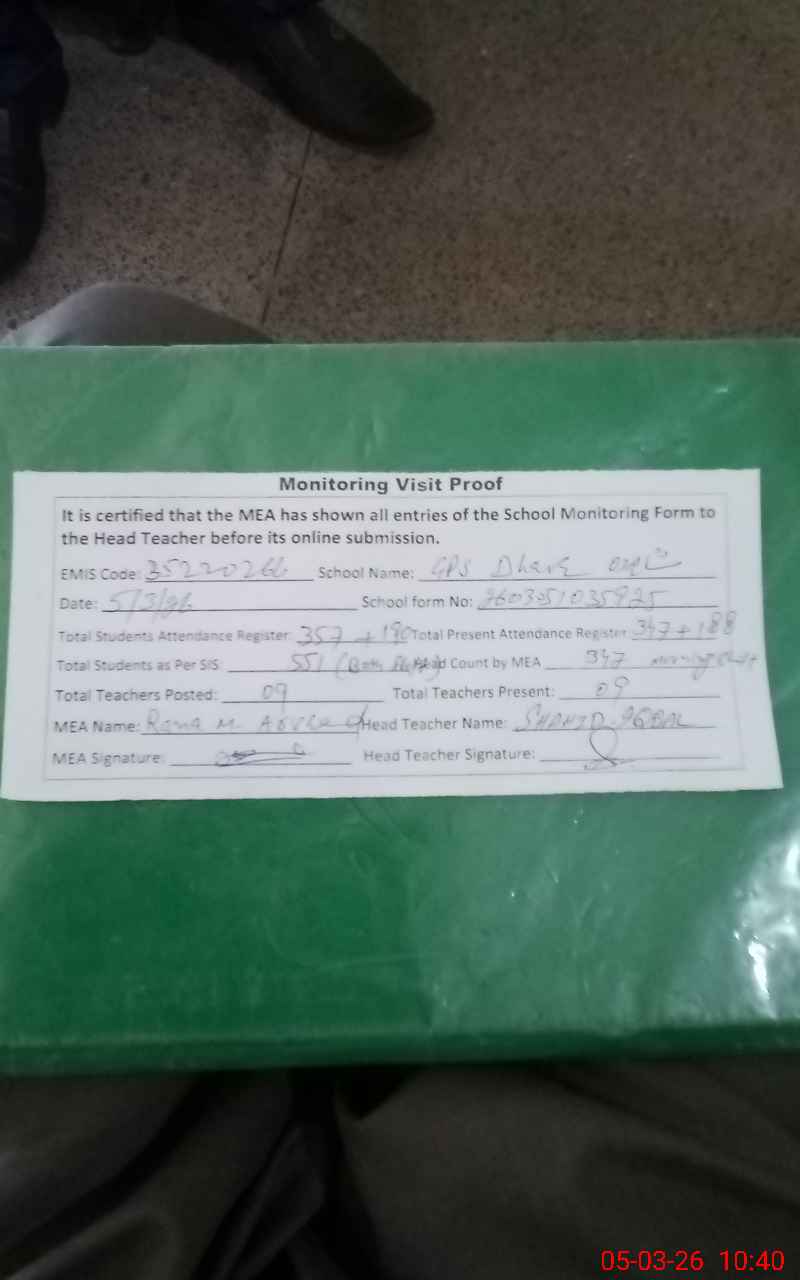 Monitoring Visit Proof
It is certified that the MEA has shown all entries of the School Monitoring Form to
the Head Teacher before its online submission.
EMIS Code: 35220266 School Name: GPS Dhave
Date: 5/3/26 School form No: 2603051035925
Total Students Attendance Register: 357 + 190 Total Present Attendance Register 347 + 188
Total Students as Per SIS 551 (Both Head Count by MEA 347 morning shift
Total Teachers Posted: 09 Total Teachers Present: 09
MEA Name: Rana M Head Teacher Name: SHAHID IQBAL
MEA Signature: Head Teacher Signature:
05-03-26 10:40